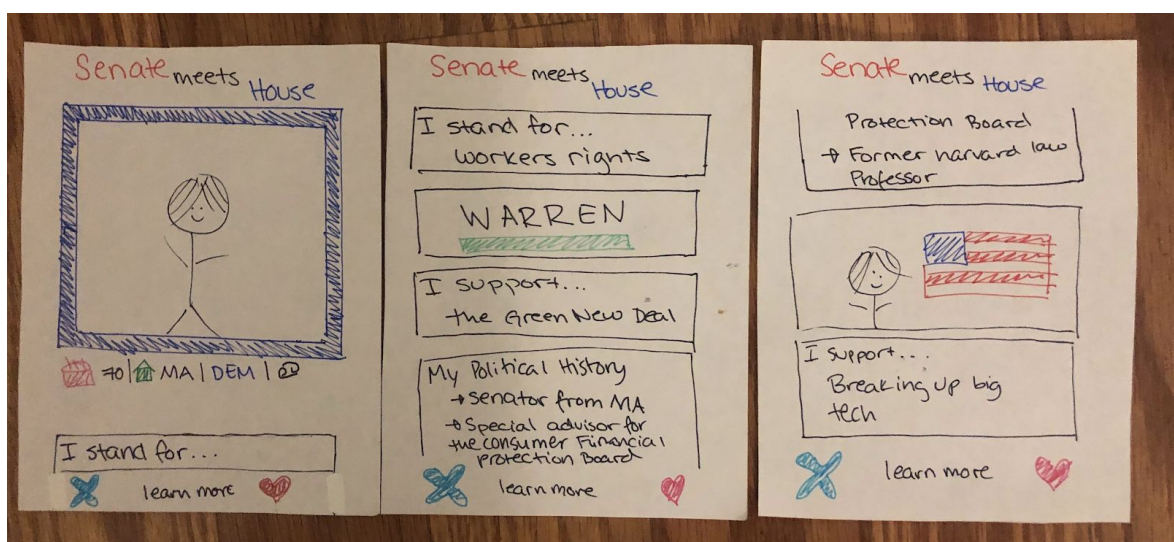 Senate meets House
70 | MA | DEM |
I stand for...
learn more
Senate meets House
I stand for...
workers rights
WARREN
I support...
the Green New Deal
My Political History
→ Senator from MA
→ Special advisor for
the consumer Financial
protection Board
learn more
Senate meets House
Protection Board
→ Former harvard law
Professor
I support....
Breaking up big
tech
learn more